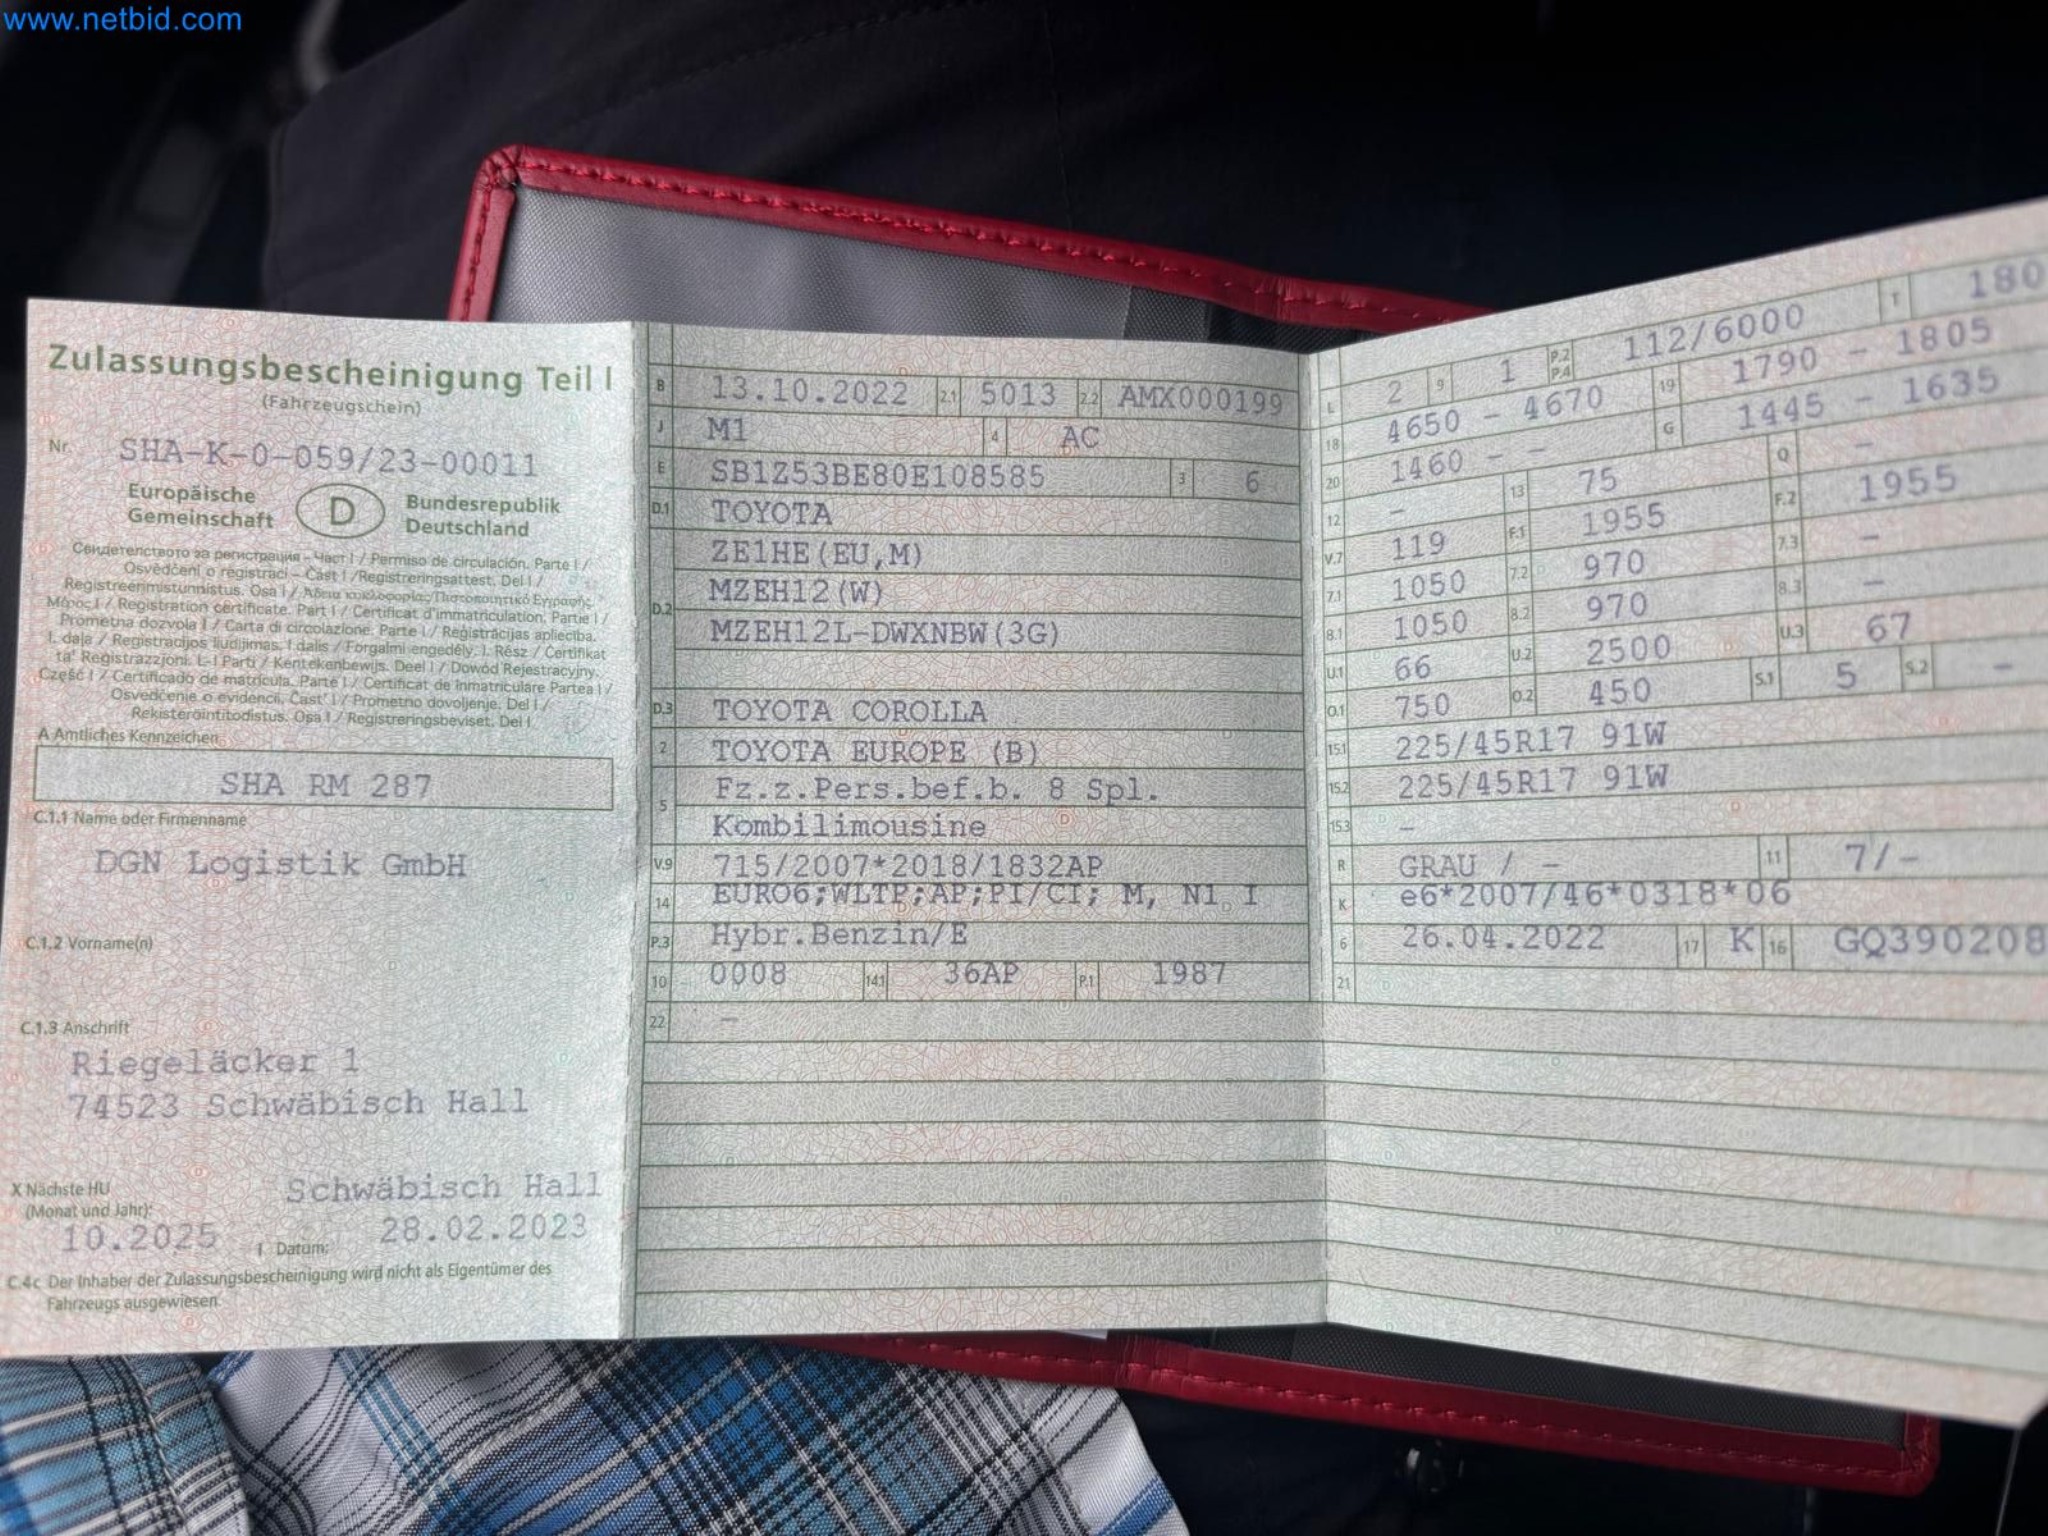 www.netbid.com
Zulassungsbescheinigung Teil I
(Fahrzeugschein)
Nr. SHA-K-0-059/23-00011
Europäische Gemeinschaft D Bundesrepublik Deutschland
Свидетелството за регистрация – Част I / Permiso de circulación. Parte I /
Osvědčení o registraci – Část I / Registreringsattest. Del I /
Registreerimistunnistus. Osa I / Άδεια κυκλοφορίας/Πιστοποιητικό Εγγραφής.
Μέρος I / Registration certificate. Part I / Certificat d'immatriculation. Partie I /
Prometna dozvola I / Carta di circolazione. Parte I / Reģistrācijas apliecība.
I. daļa / Registracijos liudijimas. I dalis / Forgalmi engedély. I. Rész / Ċertifikat
ta' Reġistrazzjoni. L-I Parti / Kentekenbewijs. Deel I / Dowód Rejestracyjny.
Część I / Certificado de matrícula. Parte I / Certificat de înmatriculare Partea I /
Osvedčenie o evidencii. Časť I / Prometno dovoljenje. Del I /
Rekisteröintitodistus. Osa I / Registreringsbeviset. Del I
A Amtliches Kennzeichen
SHA RM 287
C.1.1 Name oder Firmenname
DGN Logistik GmbH
C.1.2 Vorname(n)
C.1.3 Anschrift
Riegeläcker 1
74523 Schwäbisch Hall
X Nächste HU
(Monat und Jahr):
Schwäbisch Hall
10.2025 I Datum: 28.02.2023
C.4c Der Inhaber der Zulassungsbescheinigung wird nicht als Eigentümer des
Fahrzeugs ausgewiesen.
B 13.10.2022 2.1 5013 2.2 AMX000199
J M1 4 AC
E SB1Z53BE80E108585 3 6
D.1 TOYOTA
D.2 ZE1HE(EU,M)
MZEH12(W)
MZEH12L-DWXNBW(3G)
D.3 TOYOTA COROLLA
2 TOYOTA EUROPE (B)
5 Fz.z.Pers.bef.b. 8 Spl.
Kombilimousine
V.9 715/2007*2018/1832AP
14 EURO6;WLTP;AP;PI/CI; M, N1 I
P.3 Hybr.Benzin/E
10 0008 14.1 36AP P.1 1987
22 –
L 2 9 1 P.2 P.4 112/6000 T 180
18 4650 - 4670 19 1790 - 1805
20 1460 - - G 1445 - 1635
12 - 13 75 Q -
V.7 119 F.1 1955 F.2 1955
7.1 1050 7.2 970 7.3 -
8.1 1050 8.2 970 8.3 -
U.1 66 U.2 2500 U.3 67
O.1 750 O.2 450 S.1 5 S.2 -
15.1 225/45R17 91W
15.2 225/45R17 91W
15.3 -
R GRAU / - 11 7/-
K e6*2007/46*0318*06
6 26.04.2022 17 K 16 GQ390208
21